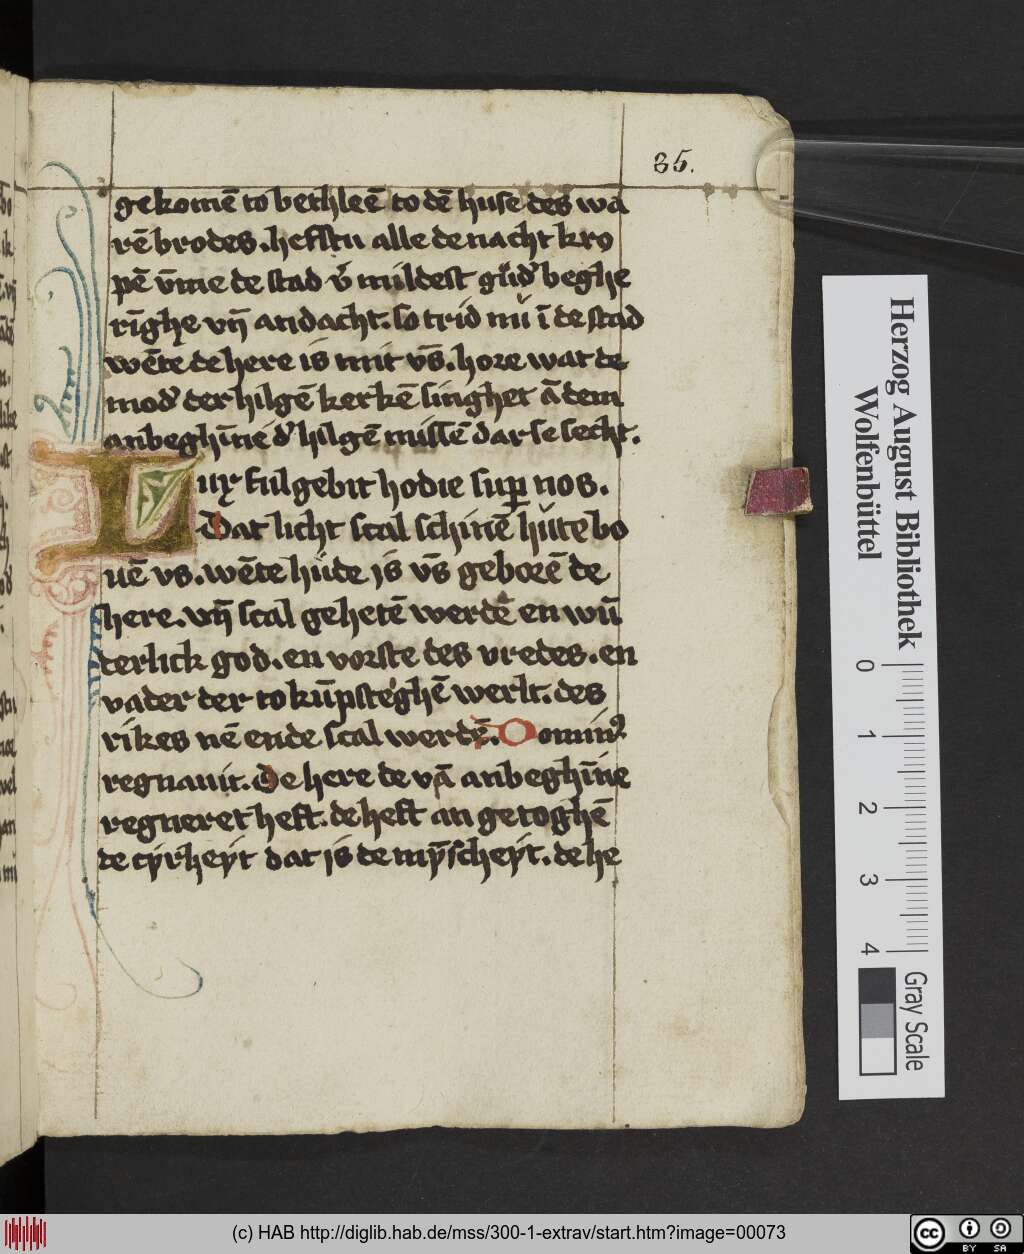 35.
gekomē to bethleē to dē huse des wa
rē brodes. hefstu alle de nacht kro
pē vm̄e de stad vn̄ mildest gud' beghe
rīghe vn̄ andacht. so trid nu ī de stad
wēte de here is mit vs̄. hore wat de
mod' der hilgē kerkē singhet ā dem
anbeghīne d' hilgē missē dar se secht.
Lux fulgebit hodie sup nos.
Dat licht scal schinē hüte bo
uē vs. wēte hüde is vs̄ geborē de
here. vn̄ scal gehetē werdē en wū
derlick god. en vorste des vredes. en
vader der to kūpsteghē werlt. des
rikes nē ende scal werdē. Domin9
regnauit. De here de vā anbeghīne
regneret heft. de heft an getoghē
de cyrheyt dat is de mȳscheyt. de he
Herzog August Bibliothek
Wolfenbüttel
0 1 2 3 4
Gray Scale
(c) HAB http://diglib.hab.de/mss/300-1-extrav/start.htm?image=00073
cc BY SA